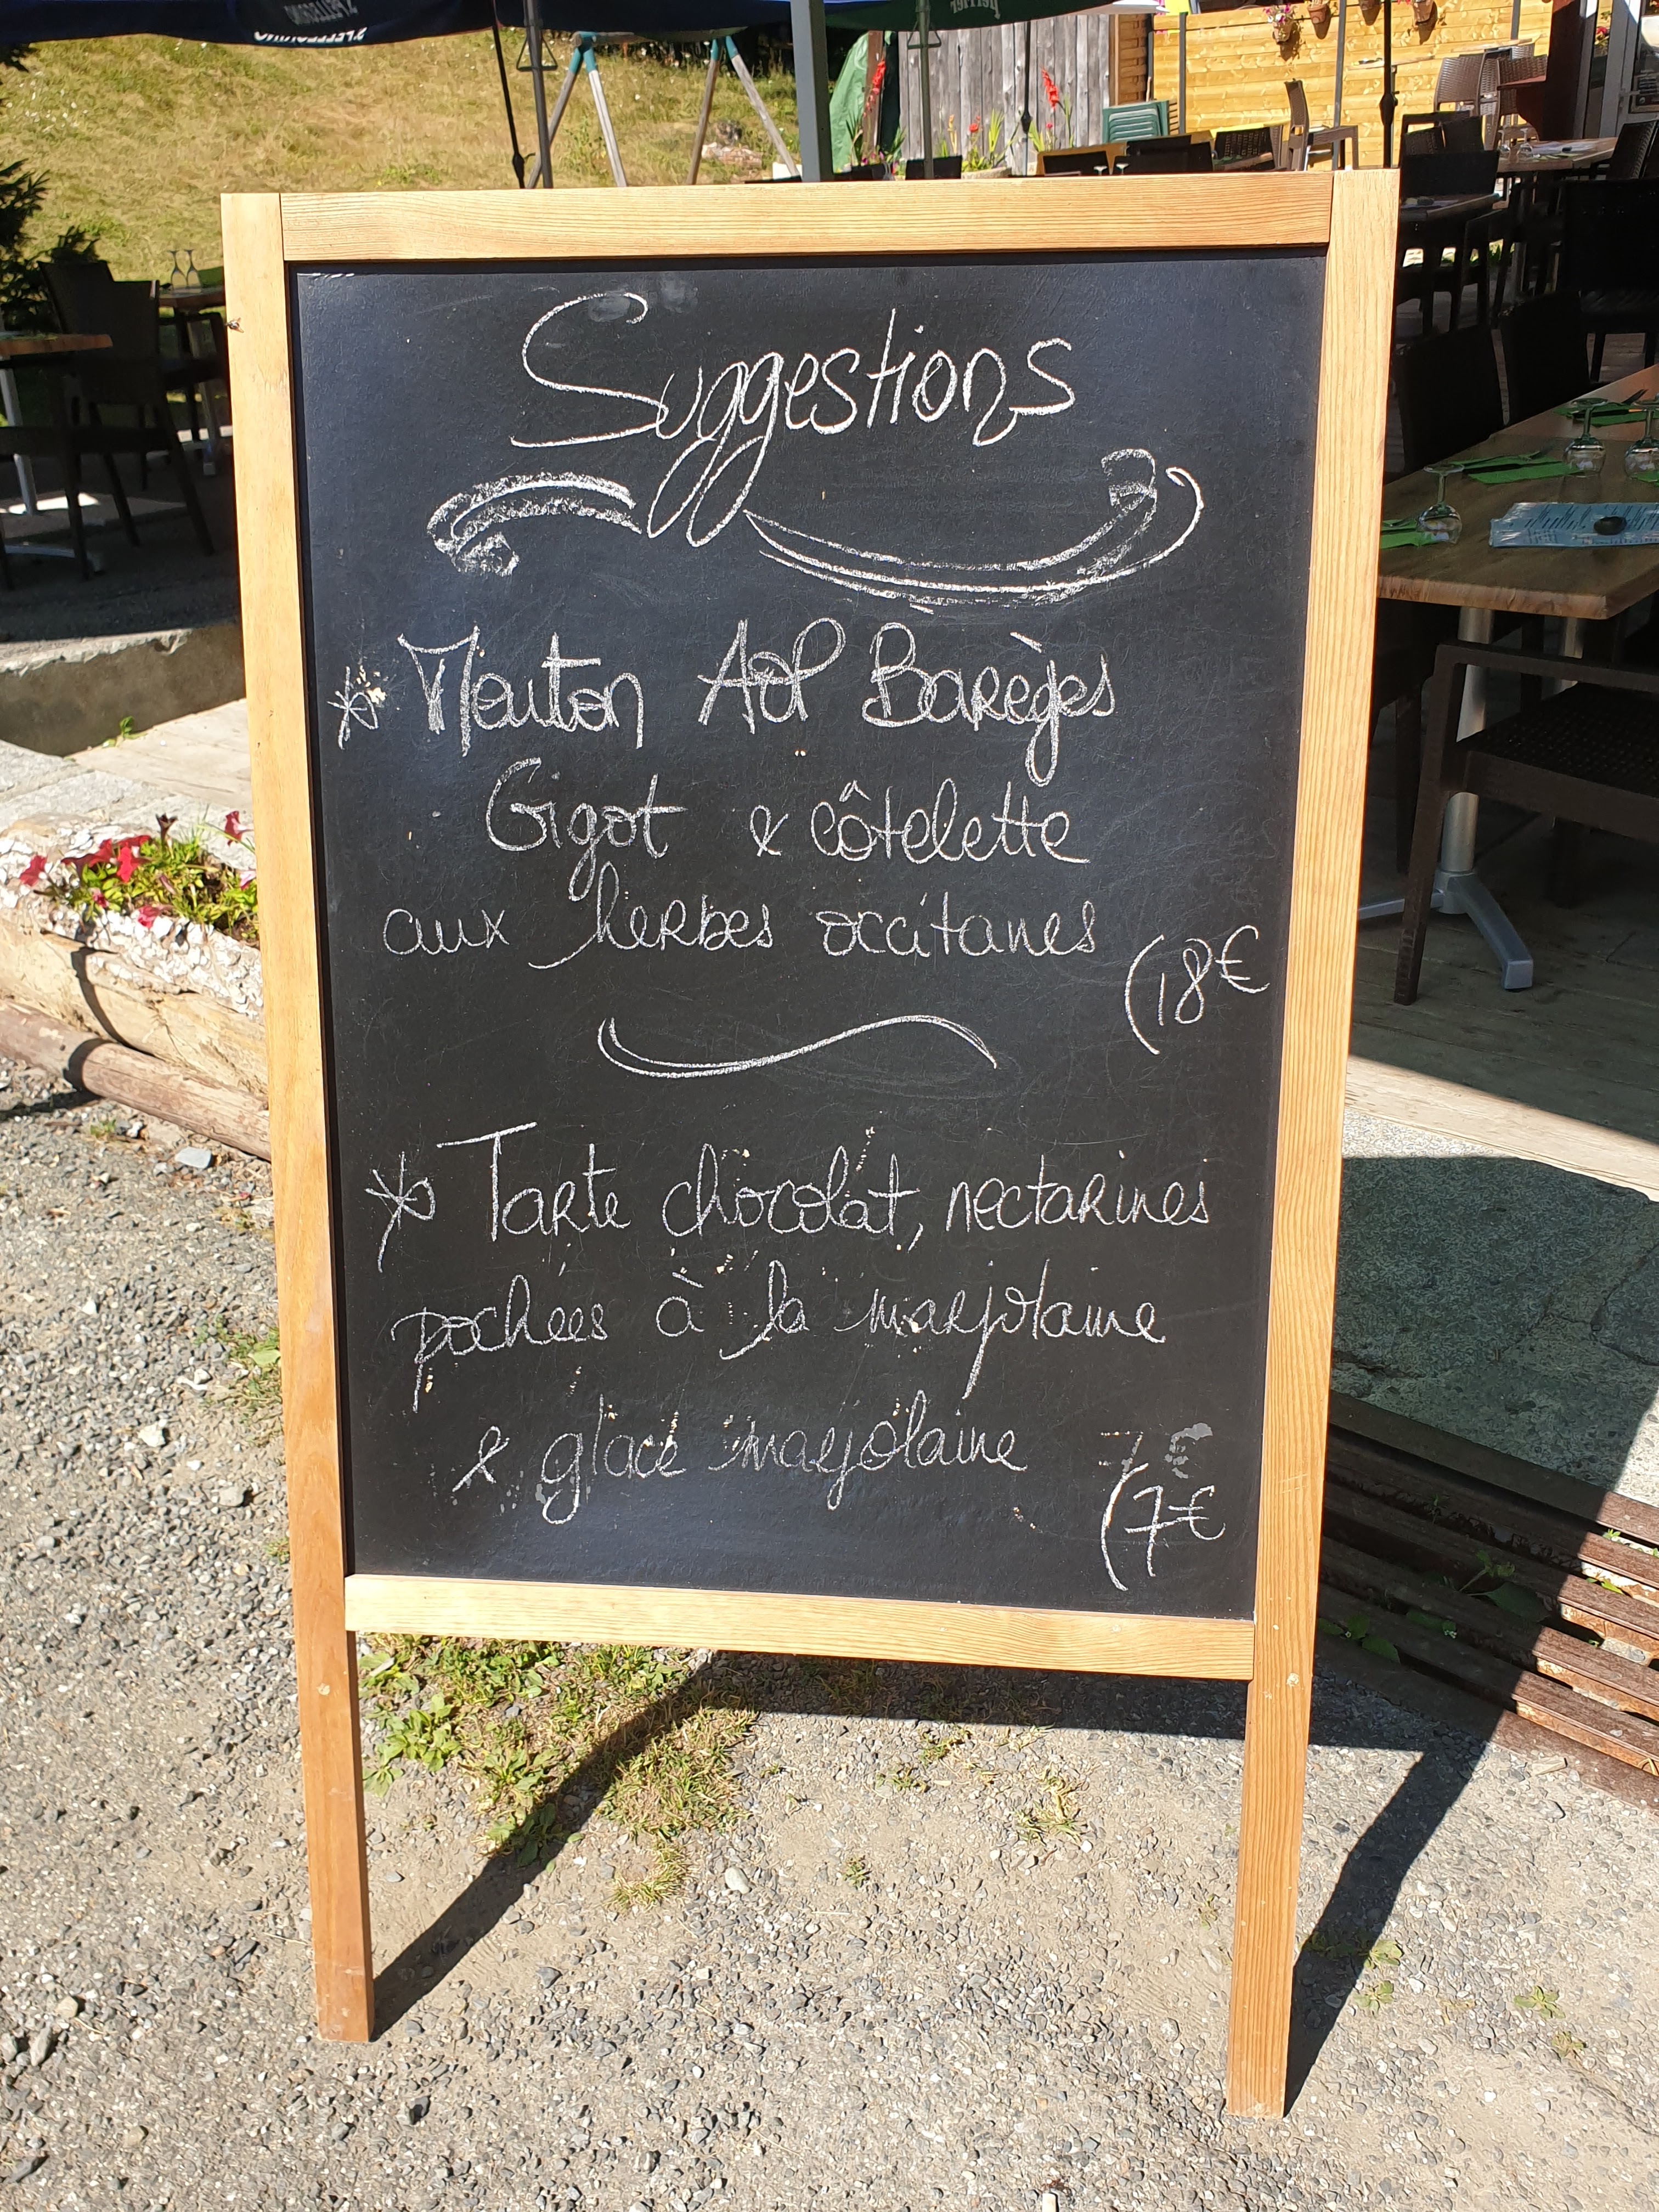 Suggestions
* Mouton AOP Barèges
Gigot & côtelette
aux herbes occitanes
(18€
* Tarte chocolat, nectarines
pochées à la marjolaine
& glace marjolaine 7€
(7€